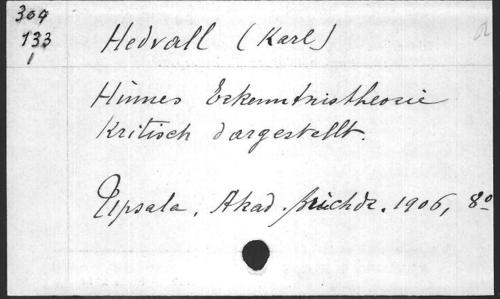 304
133
1
Hedvall (Karl)
Humes Erkenntnistheorie
Kritisch dargestellt.
Upsala, Akad. 1906, 8º